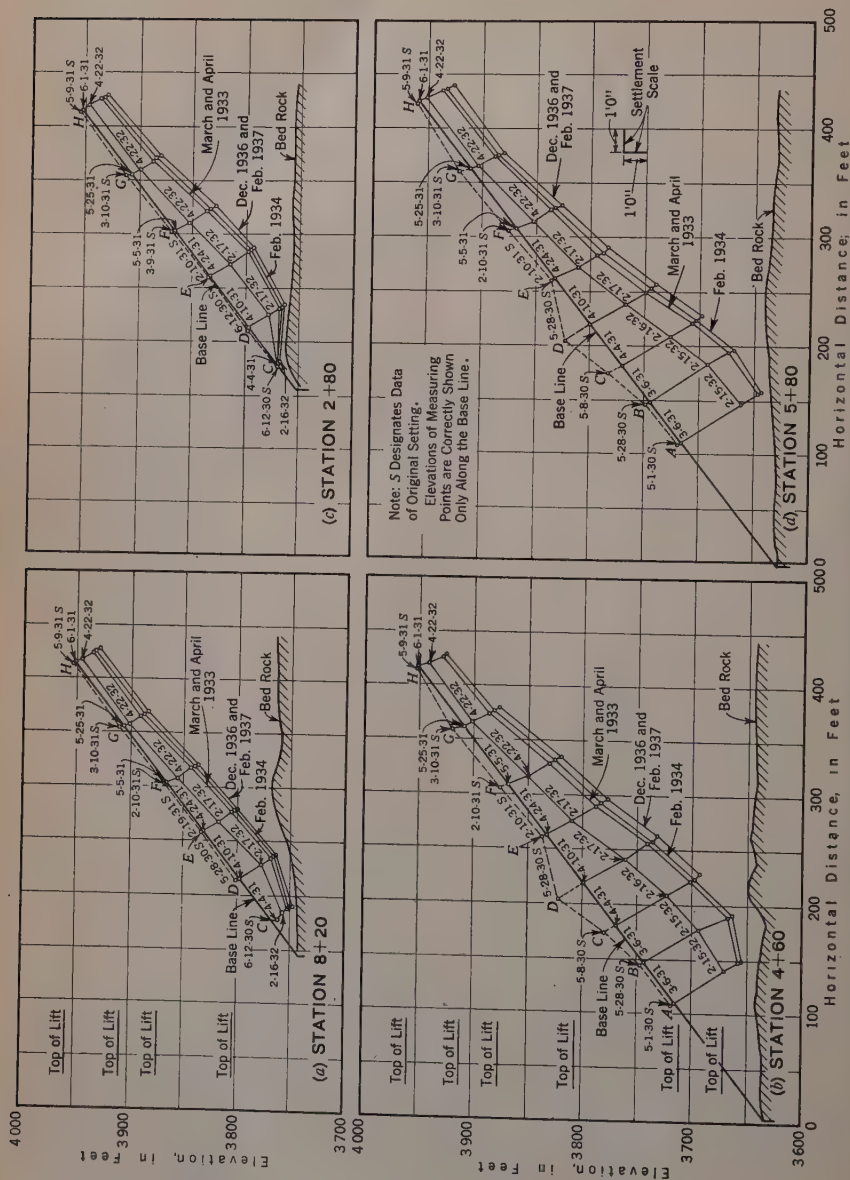 4 000
3 900
3 800
3 700
Elevation, in Feet
Top of Lift
Top of Lift
Top of Lift
Top of Lift
(a) STATION 8+20
5-9-31 S
6-1-31
4-22-32
H
5-25-31
3-10-31 S
G
5-5-31
2-10-31 S
F
4-22-32
4-22-32
2-19-31 S
4-24-31
2-17-32
E
5-28-30 S
4-10-31
2-17-32
D
4-4-31
Base Line
C
6-12-30 S
2-16-32
March and April
1933
Dec. 1936 and
Feb. 1937
Feb. 1934
Bed Rock
(c) STATION 2+80
5-9-31 S
6-1-31
4-22-32
H
5-25-31
3-10-31 S
G
5-5-31
3-9-31 S
F
4-22-32
4-22-32
2-10-31 S
4-24-31
2-17-32
E
Base Line
6-12-30 S
4-10-31
2-17-32
D
4-4-31
C
6-12-30 S
2-16-32
March and April
1933
Dec. 1936 and
Feb. 1937
Feb. 1934
Bed Rock
4 000
3 900
3 800
3 700
3 600
Elevation, in Feet
Top of Lift
Top of Lift
Top of Lift
Top of Lift
Top of Lift
Top of Lift
(b) STATION 4+60
5-9-31 S
6-1-31
4-22-32
H
5-25-31
3-10-31 S
G
2-10-31 S
F
4-22-32
5-5-31
4-22-32
2-10-31 S
4-24-31
2-17-32
E
5-28-30 S
4-10-31
2-17-32
D
4-4-31
2-16-32
C
5-8-30 S
3-6-31
2-15-32
Base Line
B
5-28-30 S
3-6-31
2-15-32
5-1-30 S
A
March and April
1933
Dec. 1936 and
Feb. 1937
Feb. 1934
Bed Rock
0
100
200
300
400
500
Horizontal Distance, in Feet
Note: S Designates Data
of Original Setting.
Elevations of Measuring
Points are Correctly Shown
Only Along the Base Line.
(d) STATION 5+80
5-9-31 S
6-1-31
4-22-32
H
5-25-31
3-10-31 S
G
5-5-31
2-10-31 S
F
4-22-32
4-22-32
2-10-31 S
4-24-31
2-17-32
E
5-28-30 S
4-10-31
2-17-32
D
Base Line
4-4-31
2-16-32
C
5-8-30 S
B
5-28-30 S
3-6-31
2-15-32
3-6-31
2-15-32
5-1-30 S
A
Dec. 1936 and
Feb. 1937
March and April
1933
Feb. 1934
Bed Rock
1'0"
1'0"
Settlement
Scale
0
100
200
300
400
500
Horizontal Distance, in Feet